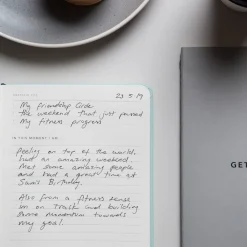 23·5·19
My friendship Circle
the weekend that just passed
My fitness progress
IN THIS MOMENT I AM...
Feeling on top of the world.
had an amazing weekend.
Met some amazing people
and had a great time at
Birthday.
Also from a fitness sense
on track and building
some momentum towards
my goal.
GET